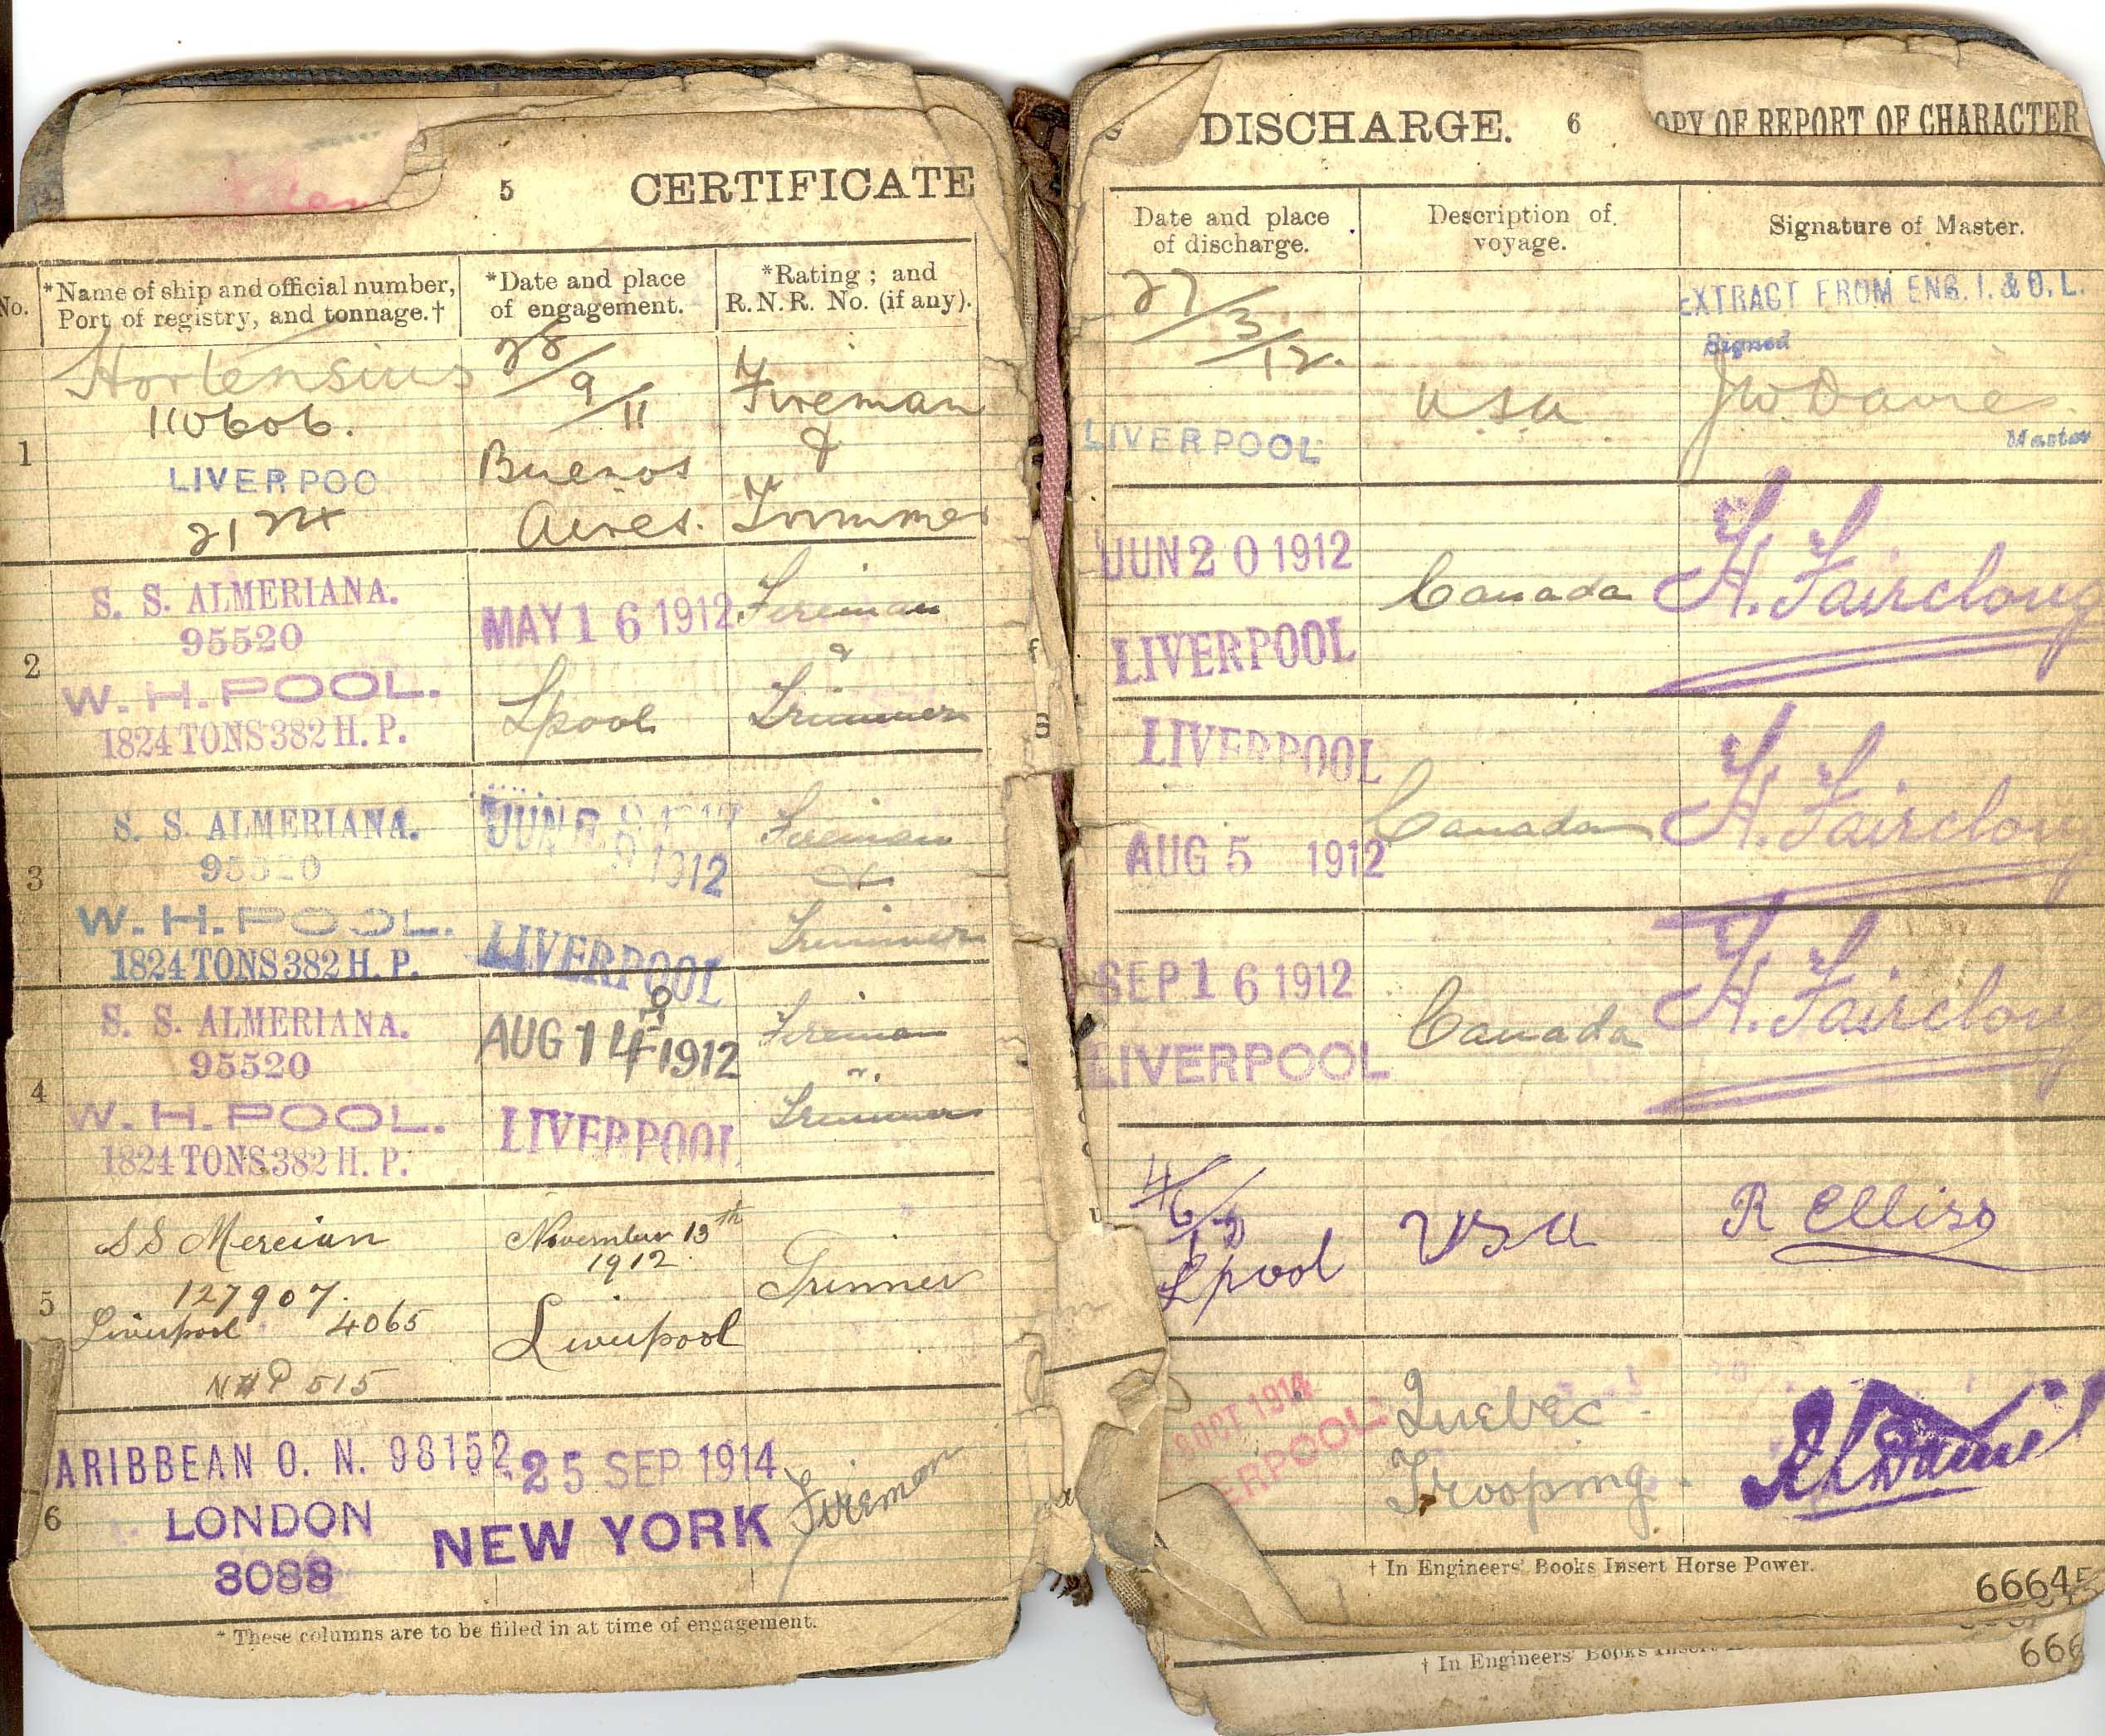 5 CERTIFICATE
No. *Name of ship and official number, Port of registry, and tonnage.†
*Date and place of engagement.
*Rating; and R.N.R. No. (if any).
1
Hortensius
110606.
LIVERPOO
2124
28/9/11
Buenos
Aires.
Fireman
&
Trimmer
2
S. S. ALMERIANA.
95520
W. H. POOL.
1824 TONS 382 H. P.
MAY 16 1912
Lpool
Fireman
&
Trimmer
3
S. S. ALMERIANA.
95520
W. H. POOL.
1824 TONS 382 H. P.
JUN
1912
LIVERPOOL
Fireman
&
Trimmer
4
S. S. ALMERIANA.
95520
W. H. POOL.
1824 TONS 382 H. P.
AUG 14 1912
LIVERPOOL
Fireman
Trimmer
5
SS Mercian
127907.
Liverpool 4065
NHP 515
November 13th
1912
Liverpool
Trimmer
6
ARIBBEAN O. N. 98152
LONDON
3088
25 SEP 1914
NEW YORK
Fireman
* These columns are to be filled in at time of engagement.
DISCHARGE. 6 OPY OF REPORT OF CHARACTER
Date and place of discharge.
Description of voyage.
Signature of Master.
27/3/12.
LIVERPOOL
USA
EXTRACT FROM ENG. 1. & O. L.
Signed
JW Davies
Master
JUN 20 1912
LIVERPOOL
Canada
H. Faircloug
LIVERPOOL
AUG 5 1912
Canada
H. Fairclou
SEP 16 1912
LIVERPOOL
Canada
H. Fairclou
Lpool
USA
R Elliso
OCT 1914
ERPOOL
Quebec
Trooping
† In Engineers' Books Insert Horse Power.
6664
† In Engineers' Books Insert
666